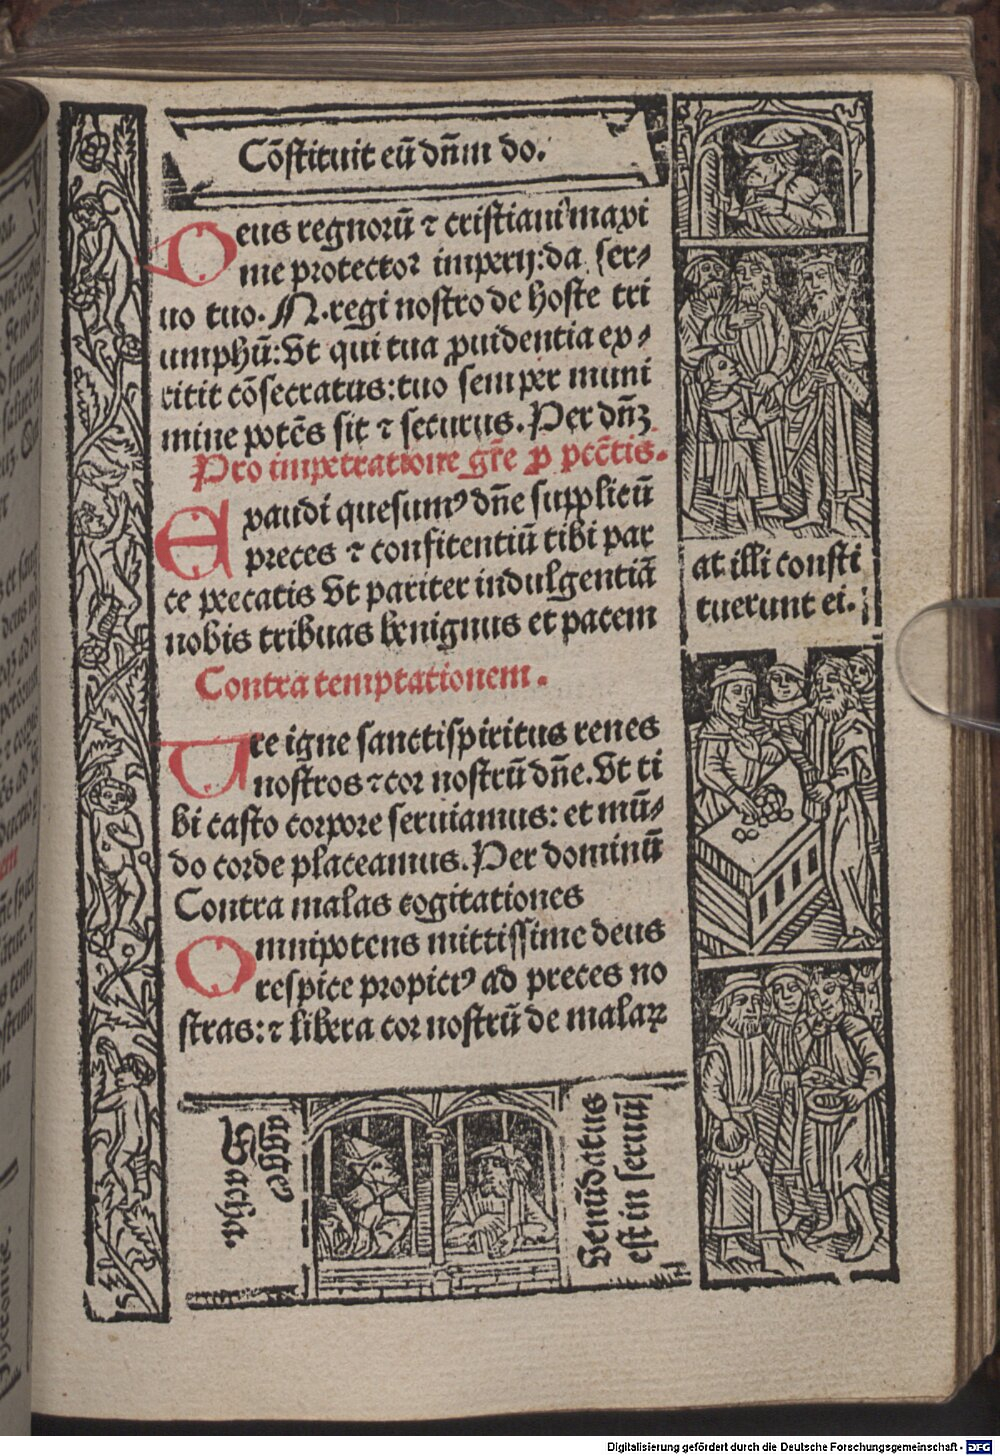 Cōstituit eū dn̄m do.
Deus regnorū ⁊ cristiani maxi
me protector imperij: da ser⸗
uo tuo. N. regi nostro de hoste tri
umphū: Ut qui tua ꝓuidentia ex⸗
titit cōsecratus: tuo semper muni
mine potēs sit ⁊ securus. Per dn̄ꝫ
Pro impetratione gr̄e ꝓ pctīs.
Exaudi quesumꝰ dn̄e supplicū
preces ⁊ confitentiū tibi par
ce peccatis Ut pariter indulgentiā
nobis tribuas benignus et pacem
Contra temptationem.
Ure igne sanctispiritus renes
nostros ⁊ cor nostrū dn̄e. Ut ti
bi casto corpore seruiamus: et mū⸗
do corde placeamus. Per dominū
Contra malas cogitationes
Omnipotens mittissime deus
respice propiciꝰ ad preces no
stras: ⁊ libera cor nostrū de malaꝝ
at illi consti
tuerunt ei.
aggeꝰ
Zacha.
Uenūdatus
est in seruū
Digitalisierung gefördert durch die Deutsche Forschungsgemeinschaft - DFG